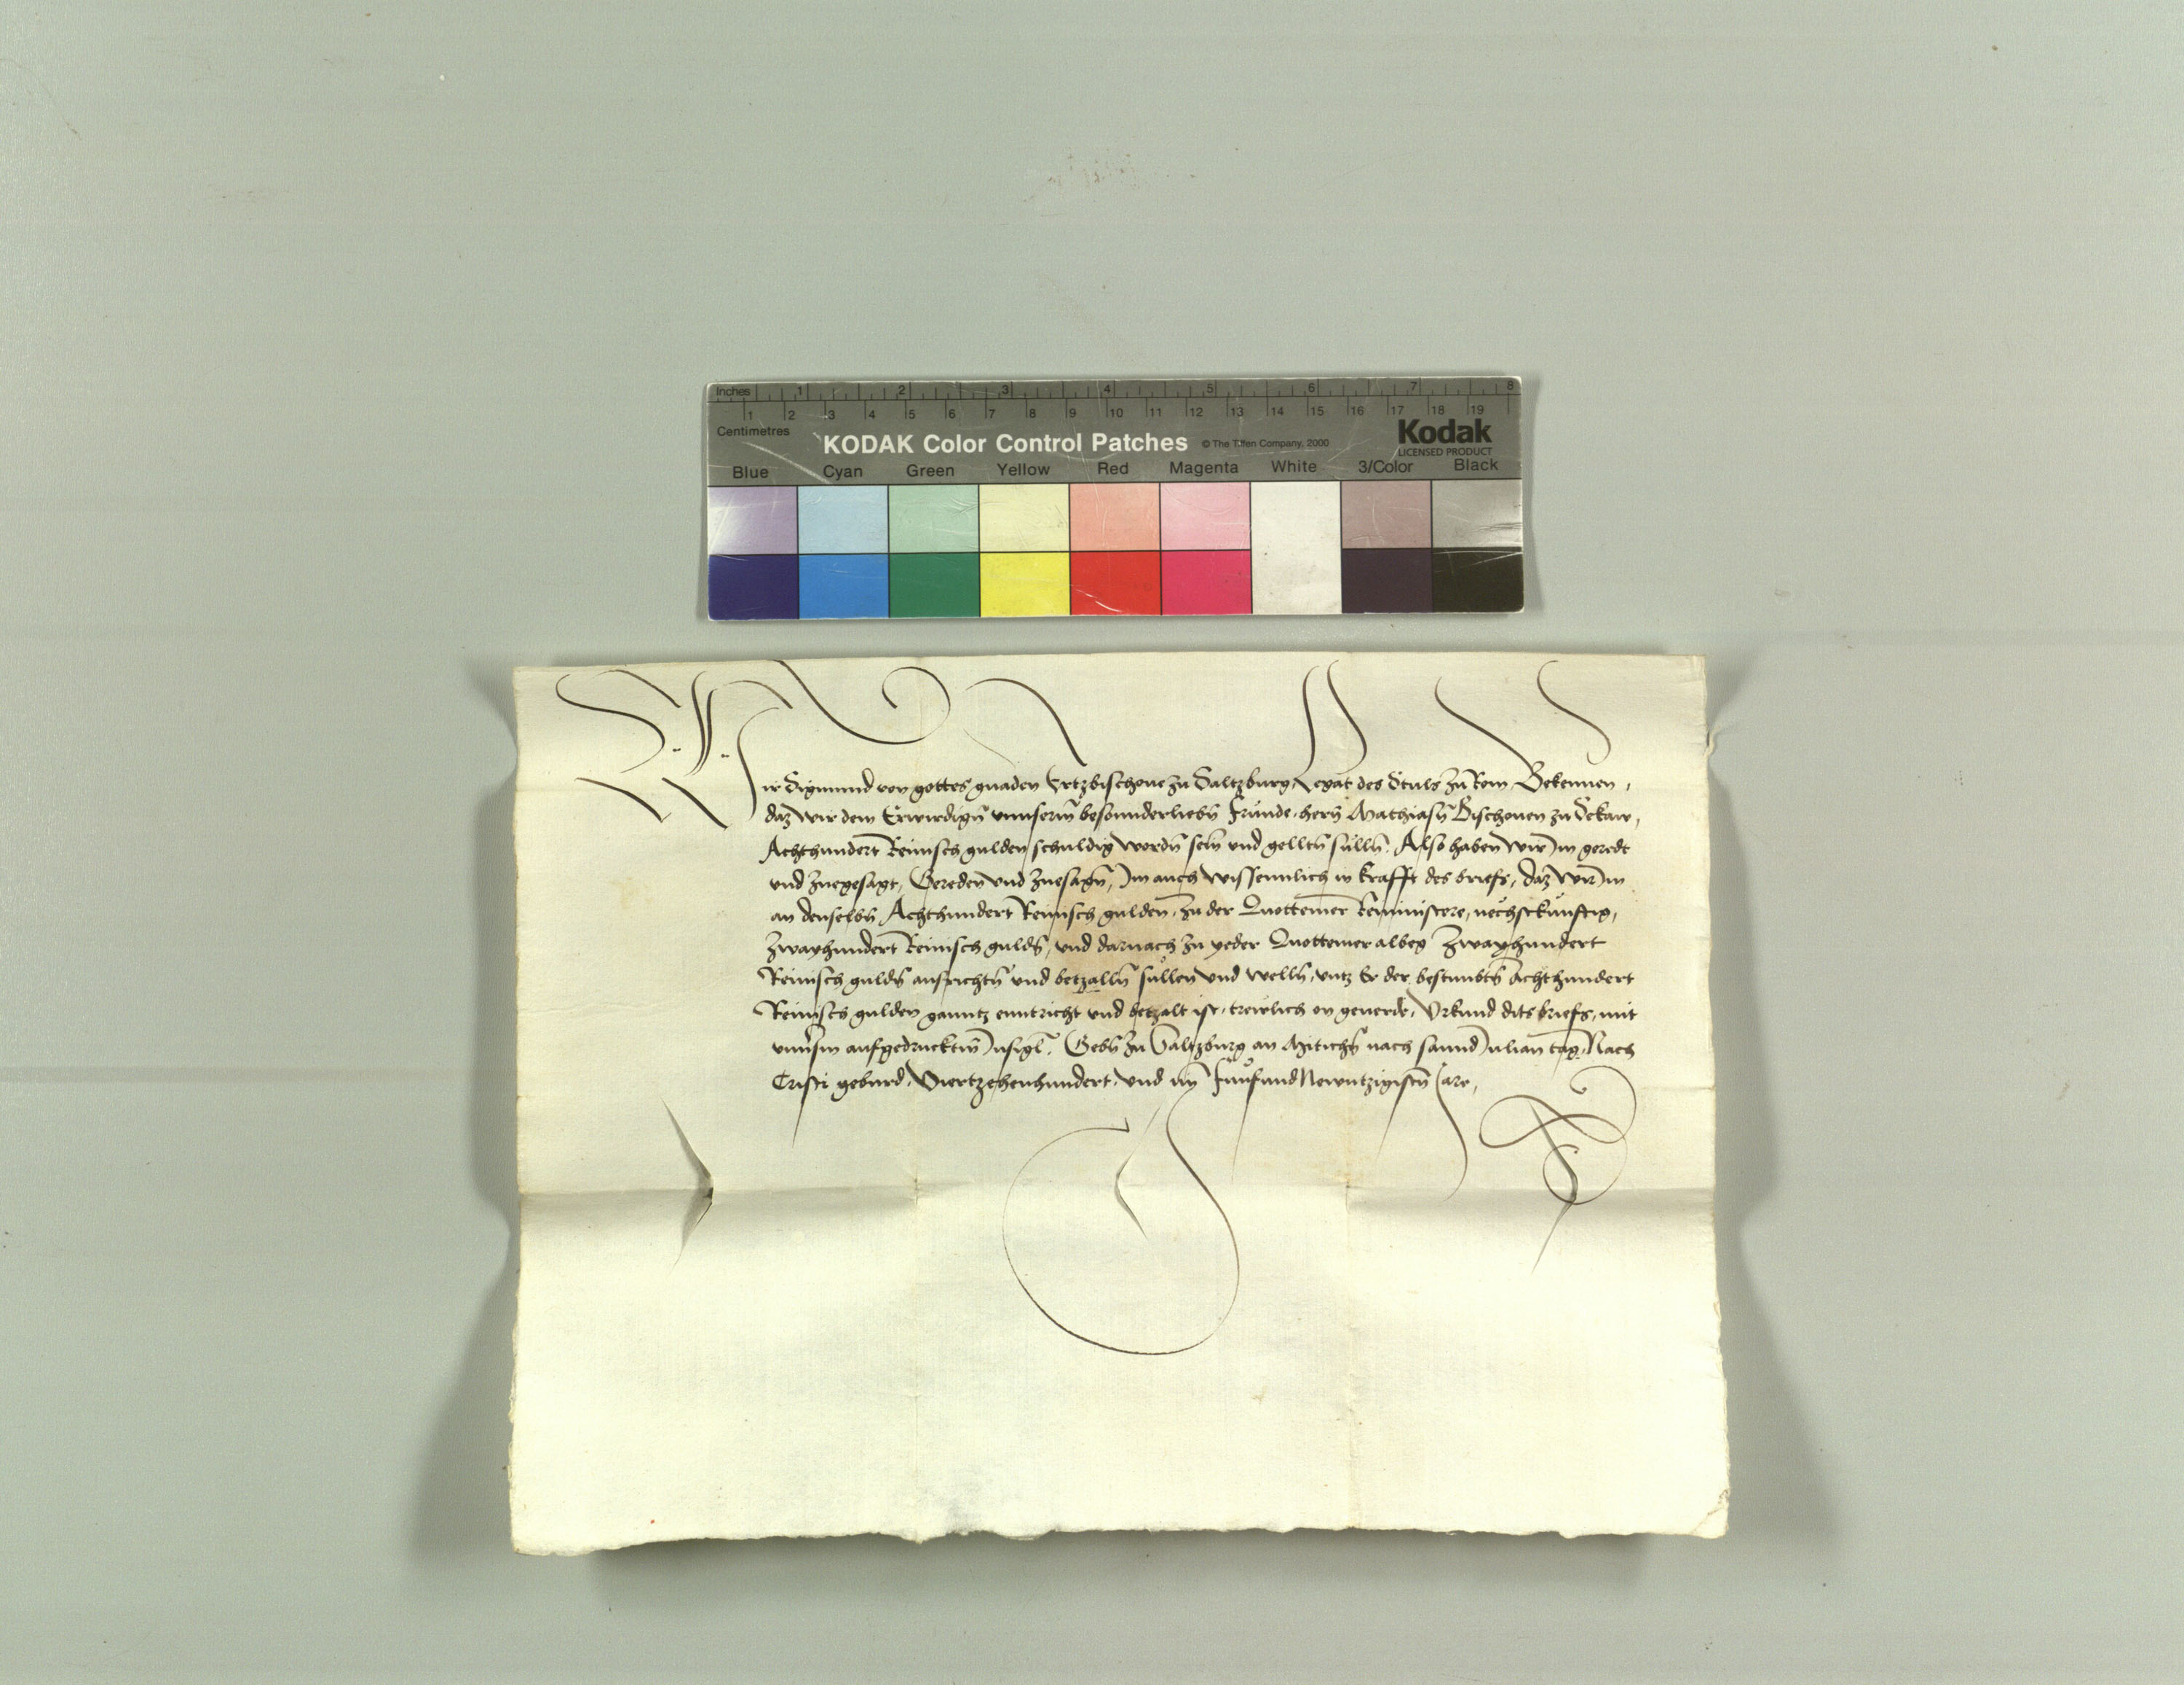 Inches 1 2 3 4 5 6 7 8
1 2 3 4 5 6 7 8 9 10 11 12 13 14 15 16 17 18 19
Centimetres
KODAK Color Control Patches © The Tiffen Company, 2000 Kodak
LICENSED PRODUCT
Blue Cyan Green Yellow Red Magenta White 3/Color Black
Wir Sigmund von gottes gnaden Ertzbischoue zu Saltzburg, Legat des Stuls zu Rom, Bekennen,
daz wir dem Erwirdign̄ vnnserm̄ besonnderliebn̄ Fründe, hern̄ Mathiasn̄ Bischouen zu Sekaw,
Achthundert Reinisch gulden schuldig wordn̄ sein vnd gelltn̄ sülln̄. Also haben wir im geredt
vnd zuegesagt, Gereden vnd zuesagn̄, Im auch wissennlich in krafft des briefs, daz wir im
an denselbn̄ Achthundert Reinisch gulden, zu der Quottemer Reminiscere, nechstkünftig,
Zwayhundert Reinisch guldn̄, vnd darnach zu yeder Quottemer albeg Zwayhundert
Reinisch guldn̄ ausrichtn̄ vnd betzalln̄ süllen vnd welln̄, vntz Er der bestimbtn̄ Achthundert
Reinisch gulden ganntz enntricht vnd betzalt ist, trewlich on geuerde, Vrkund dits briefs, mit
vnnserm aufgedrucktem̄ Insigl. Gebn̄ zu Saltzburg an Mitichn̄ nach sannd Julian tag, Nach
Cristi geburd, Viertzehenhundert, vnd im̄ Fünfundnewntzigistn̄ Jare,